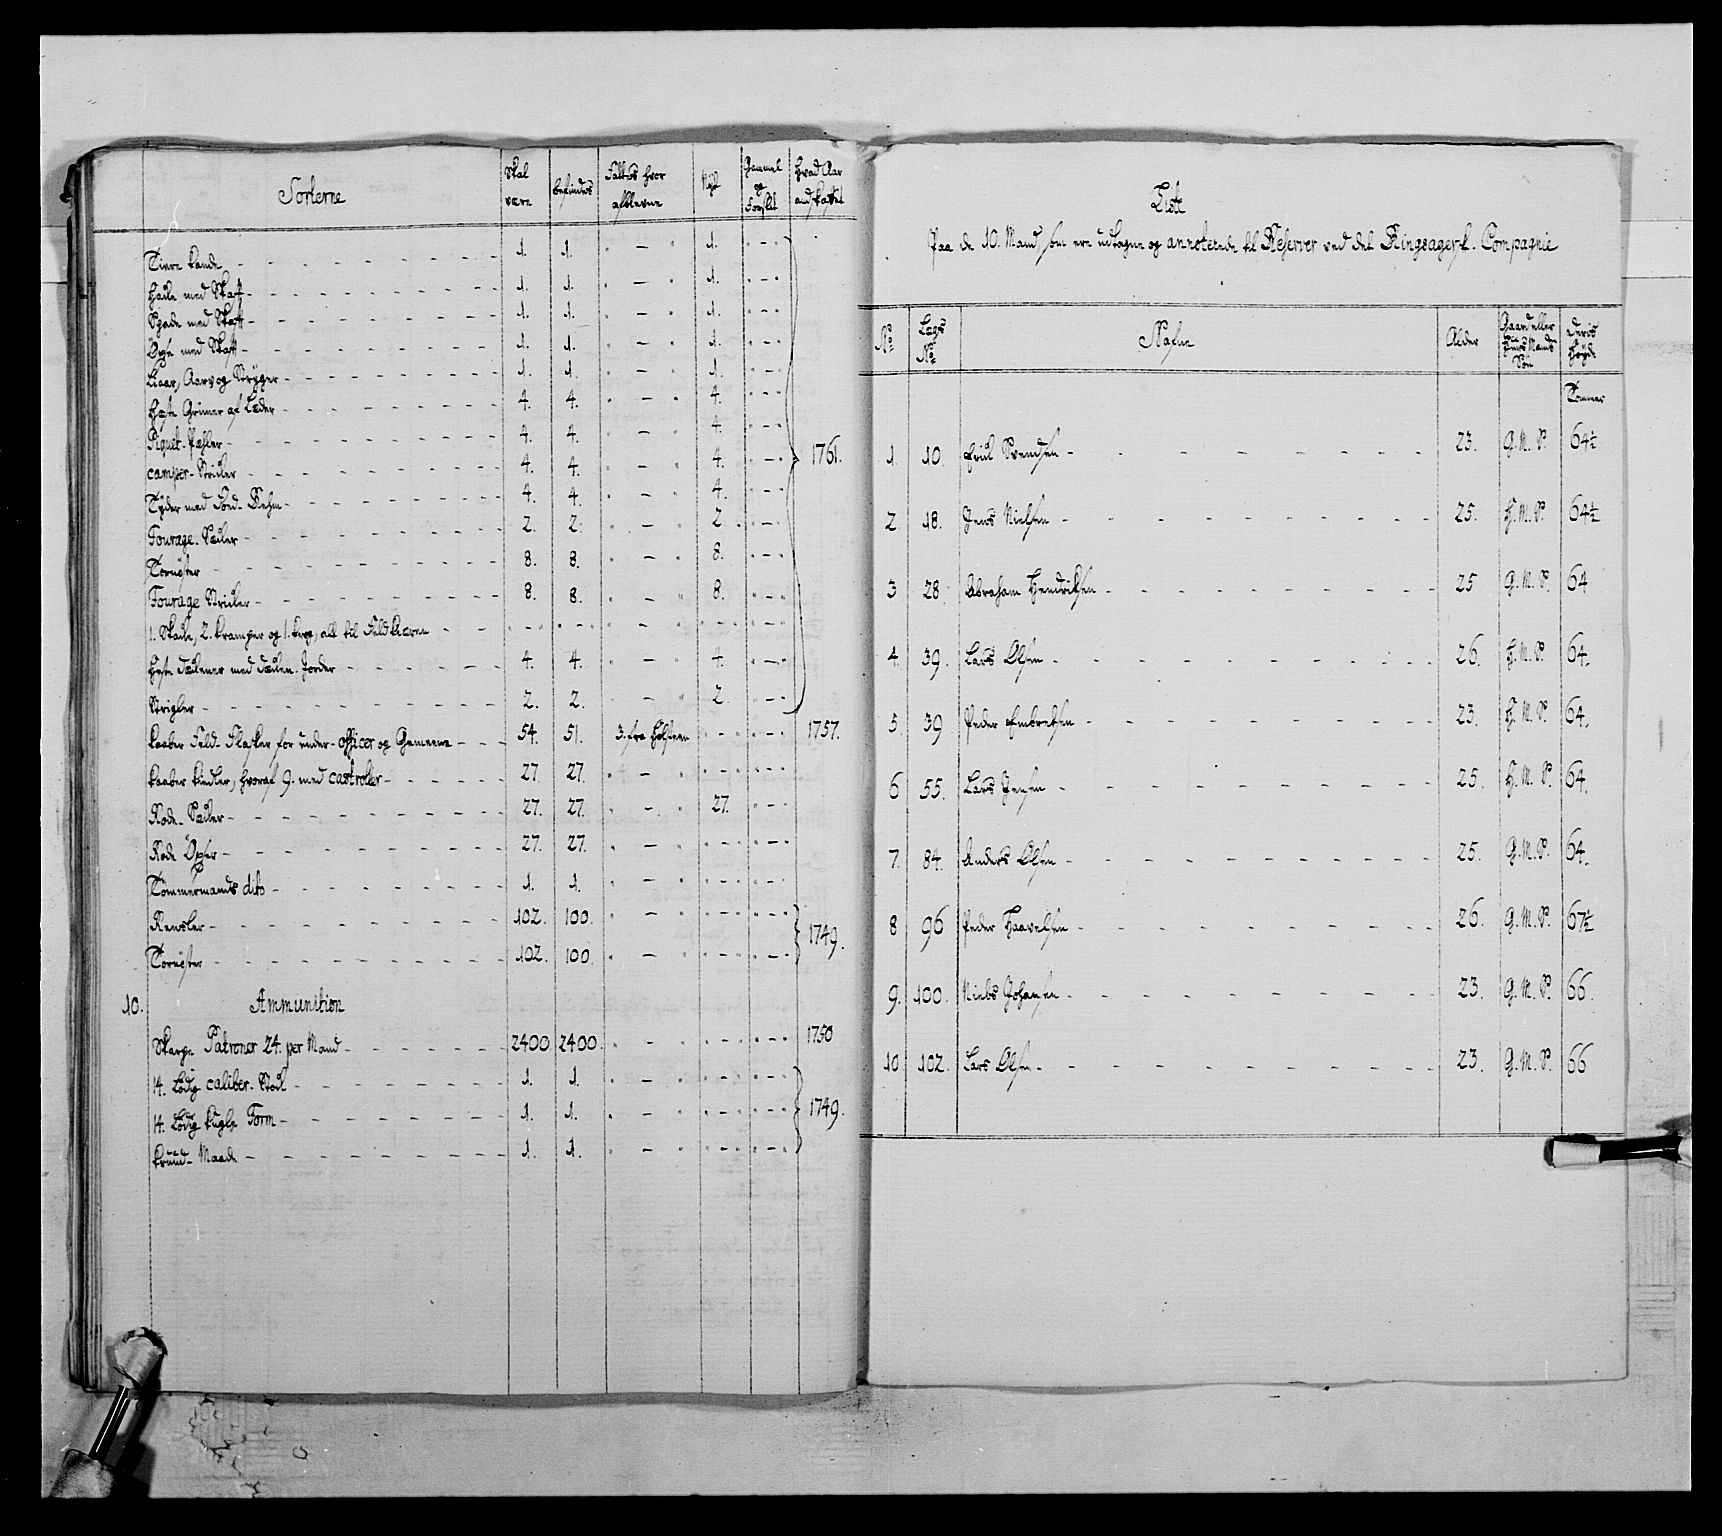 Sorterne | Skal være | befindes | Fattes hvor afblevne | Nyt | Gammel og Forslit | Hvad Aar anskaffet
Tiære kande | 1. | 1. | 1.
Hakke med Skaft | 1. | 1. | 1.
Spade med Skaft | 1. | 1. | 1.
Øxe med Skaft | 1. | 1. | 1.
Liaar, Aarv og Stryger | 1. | 1. | 1.
Heste Grimer af Læder | 4. | 4. | 4.
Piquet-Pæhler | 4. | 4. | 4. | 1761.
camper-Stricker | 4. | 4. | 4.
Tyder med Foed-Rehm | 4. | 4. | 4.
Fourage-Sæcker | 2. | 2. | 2.
Tornister | 8. | 8. | 8.
Fourage Stricker | 8. | 8. | 8.
1. Skade, 2. kramper og 1. krog, alt til Feldkæren
Heste Dækener med Dæken-Jorder | 4. | 4. | 4.
Strigler | 2. | 2. | 2.
Kaaber Feld-Flasker for under-officer og Gemeene | 54. | 51. | 3. fra Holsteen | 1757.
Kaaber Kiedler, hvoraf 9. med castroller | 27. | 27.
Rode-Sæcker | 27. | 27. | 27.
Rode Øxer | 27. | 27.
Tømmermands dito | 1. | 1.
Rensler | 102. | 100.
Tornister | 102. | 100. | 1749.
10. Ammunition
Skarpe Patroner 24. per Mand | 2400 | 2400 | 1750
14. Lødig caliber-Stok | 1. | 1.
14. Lødig Kugle Form | 1. | 1. | 1749.
Krud-Maade | 1. | 1.
Liste
Paa de 10. Mand, som ere udtagne og annoterede til Reserver ved det Ringsagersk. Compagnie
No | Lægs No | Nafne | Alder | Gaard eller Huus Mands Søn | Deris Høyde
Tommer
1 | 10. | Erick Svendsen | 23. | G. M. S. | 64½
2. | 18. | Jens Nielsen | 25. | H. M. S. | 64½
3 | 28. | Abraham Hendriksen | 25 | G. M. S. | 64
4. | 39. | Lars Olsen | 26. | H. M. S. | 64.
5. | 39 | Peder Embretsen | 23. | H. M. S. | 64.
6 | 55. | Lars Jensen | 25. | H. M. S. | 64.
7. | 84. | Anders Olsen | 25. | G. M. S. | 64.
8 | 96 | Peder Haavelsen | 26. | G. M. S. | 67½
9. | 100. | Niels Johansen | 23. | G. M. S. | 66.
10 | 102. | Lars Olsen | 23. | G. M. S. | 66